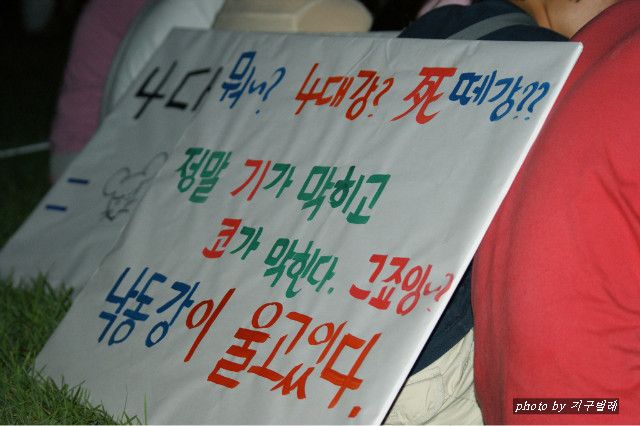 뭐니? 4대강? 死떼강??
정말 기가 막히고
코가 막힌다. 그죠잉~?
낙동강이 울고있다.
4다
photo by 지구벌레